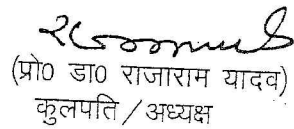 (प्रो0 डा0 राजाराम यादव)
कुलपति / अध्यक्ष